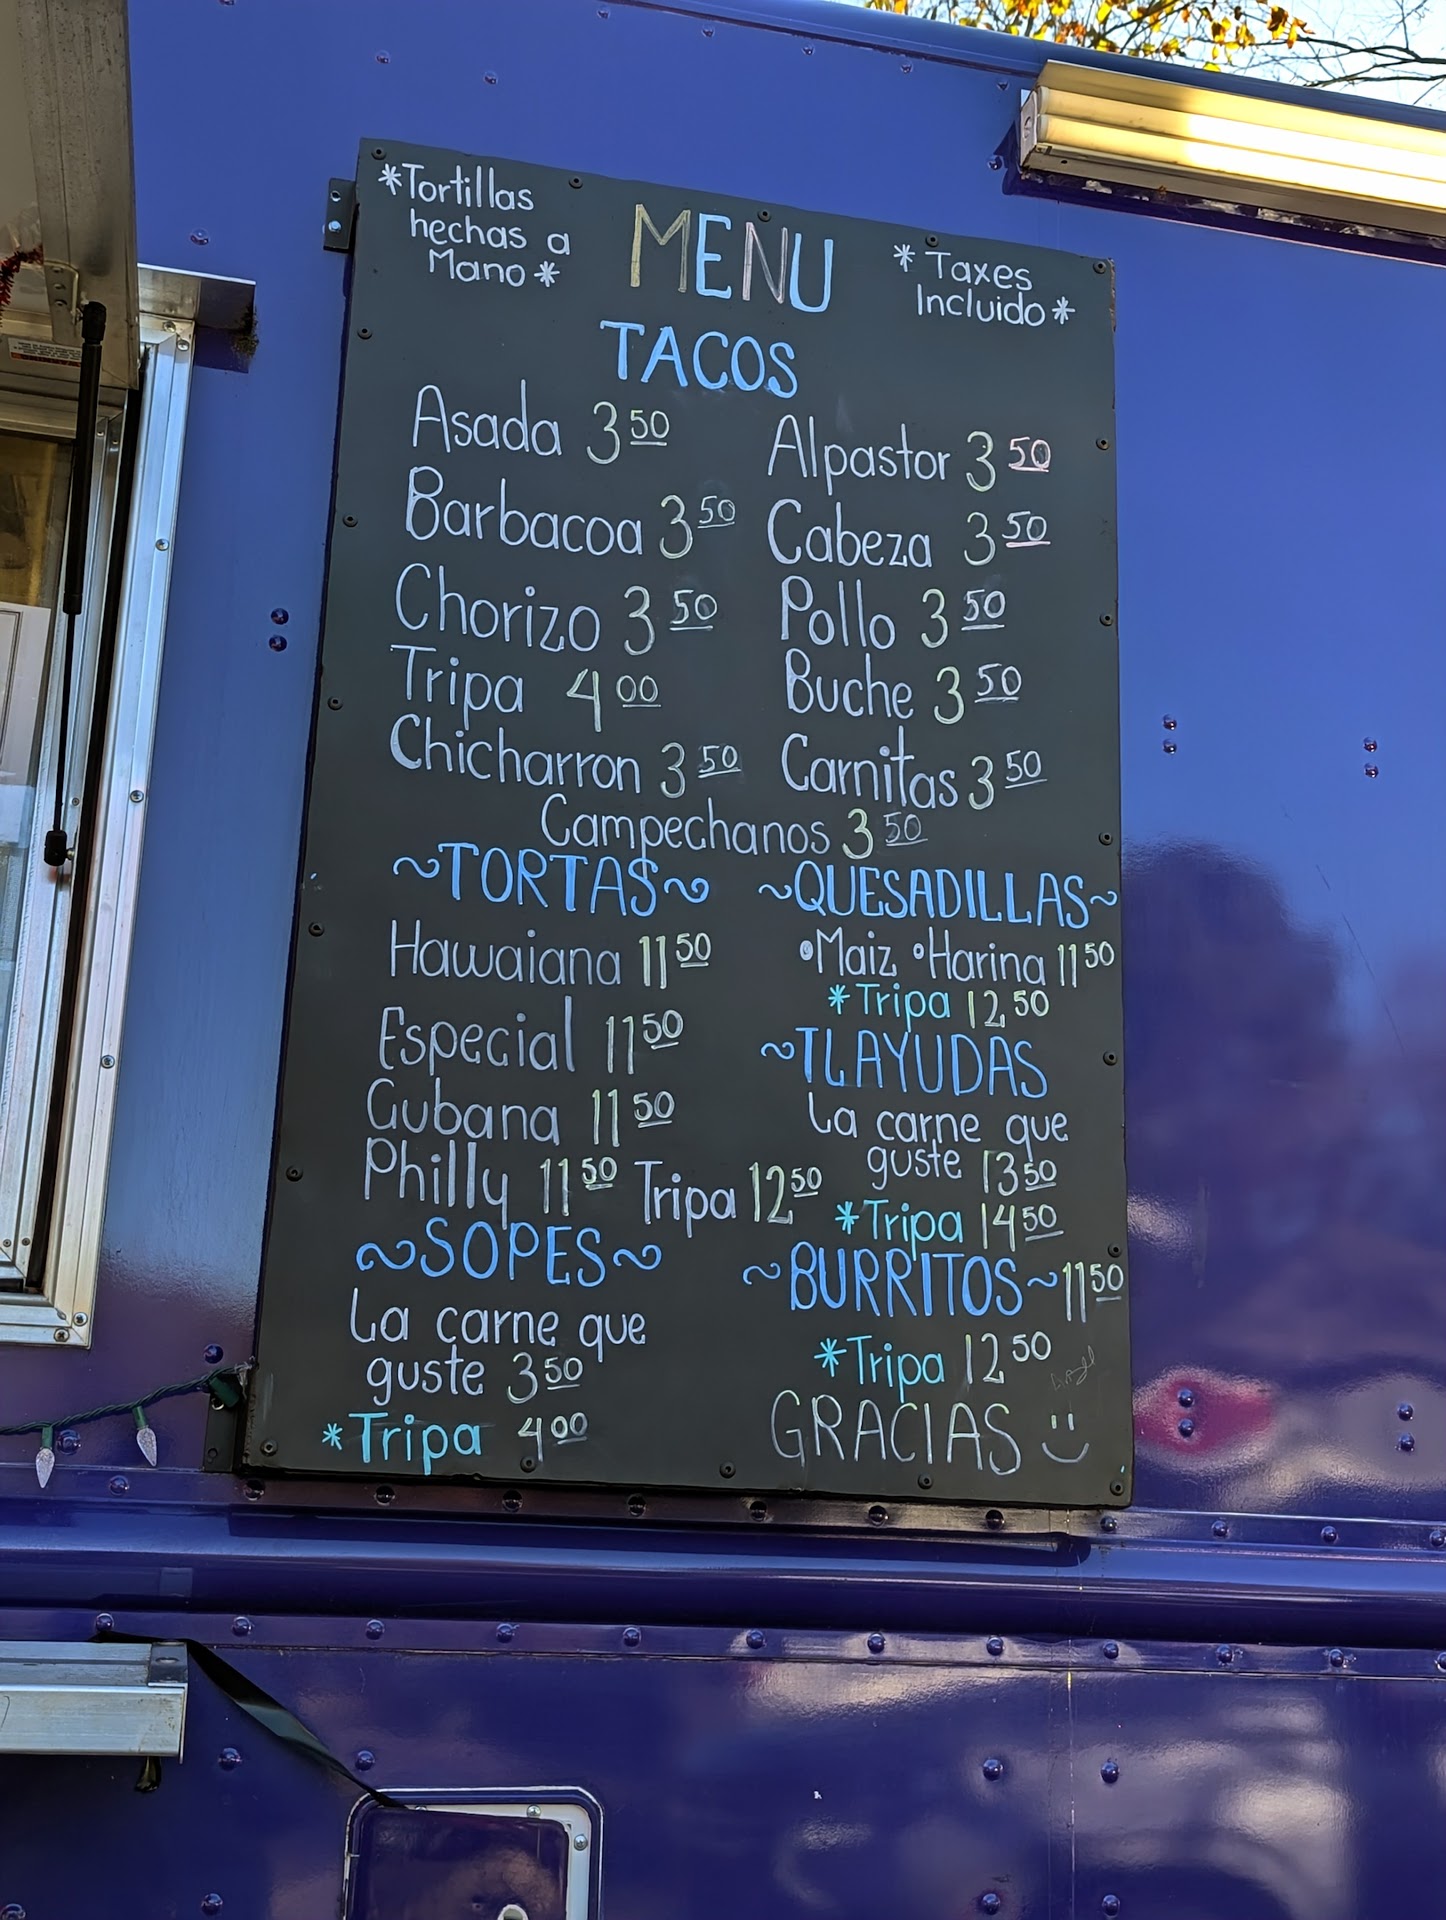 *Tortillas
hechas a
Mano*
MENU
*Taxes
Incluido*
TACOS
Asada 3 50
Alpastor 3 50
Barbacoa 3 50
Cabeza 3 50
Chorizo 3 50
Pollo 3 50
Tripa 4 00
Buche 3 50
Chicharron 3 50
Carnitas 3 50
Campechanos 3 50
~TORTAS~
Hawaiana 11 50
Especial 11 50
Cubana 11 50
Philly 11 50 Tripa 12 50
~SOPES~
La carne que
guste 3 50
*Tripa 4 00
~QUESADILLAS~
•Maiz •Harina 11 50
*Tripa 12.50
~TLAYUDAS
La carne que
guste 13 50
*Tripa 14 50
~BURRITOS~ 11 50
*Tripa 12 50
GRACIAS